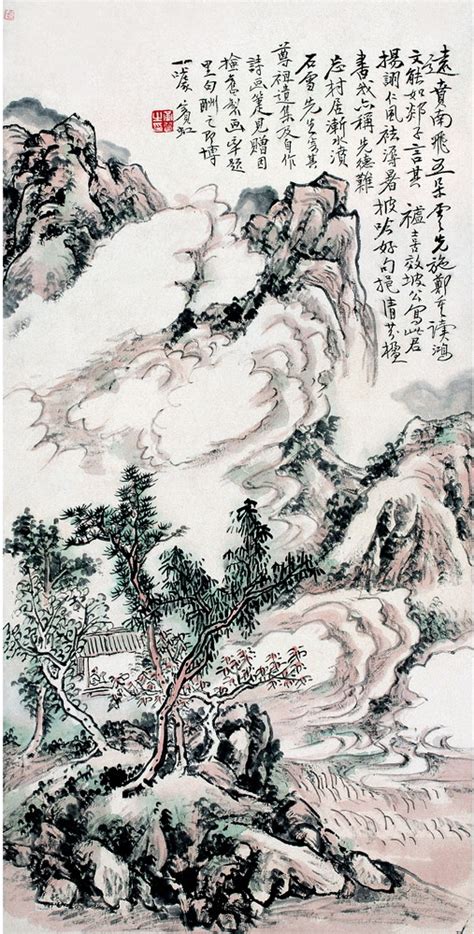 遠賁南飛五朵雲先施鄭重讀鴻
文能如郯子言其喜效坡公寫此君
揚詡仁風祛溽暑披吟好句挹清芬楹
書我亦稱先德難
忘村居漸水濱
石雪先生寄其
尊祖遺集及自作
詩畫箑見贈因
撿舊製畫率題
里句酬之即博
一噱 賓虹